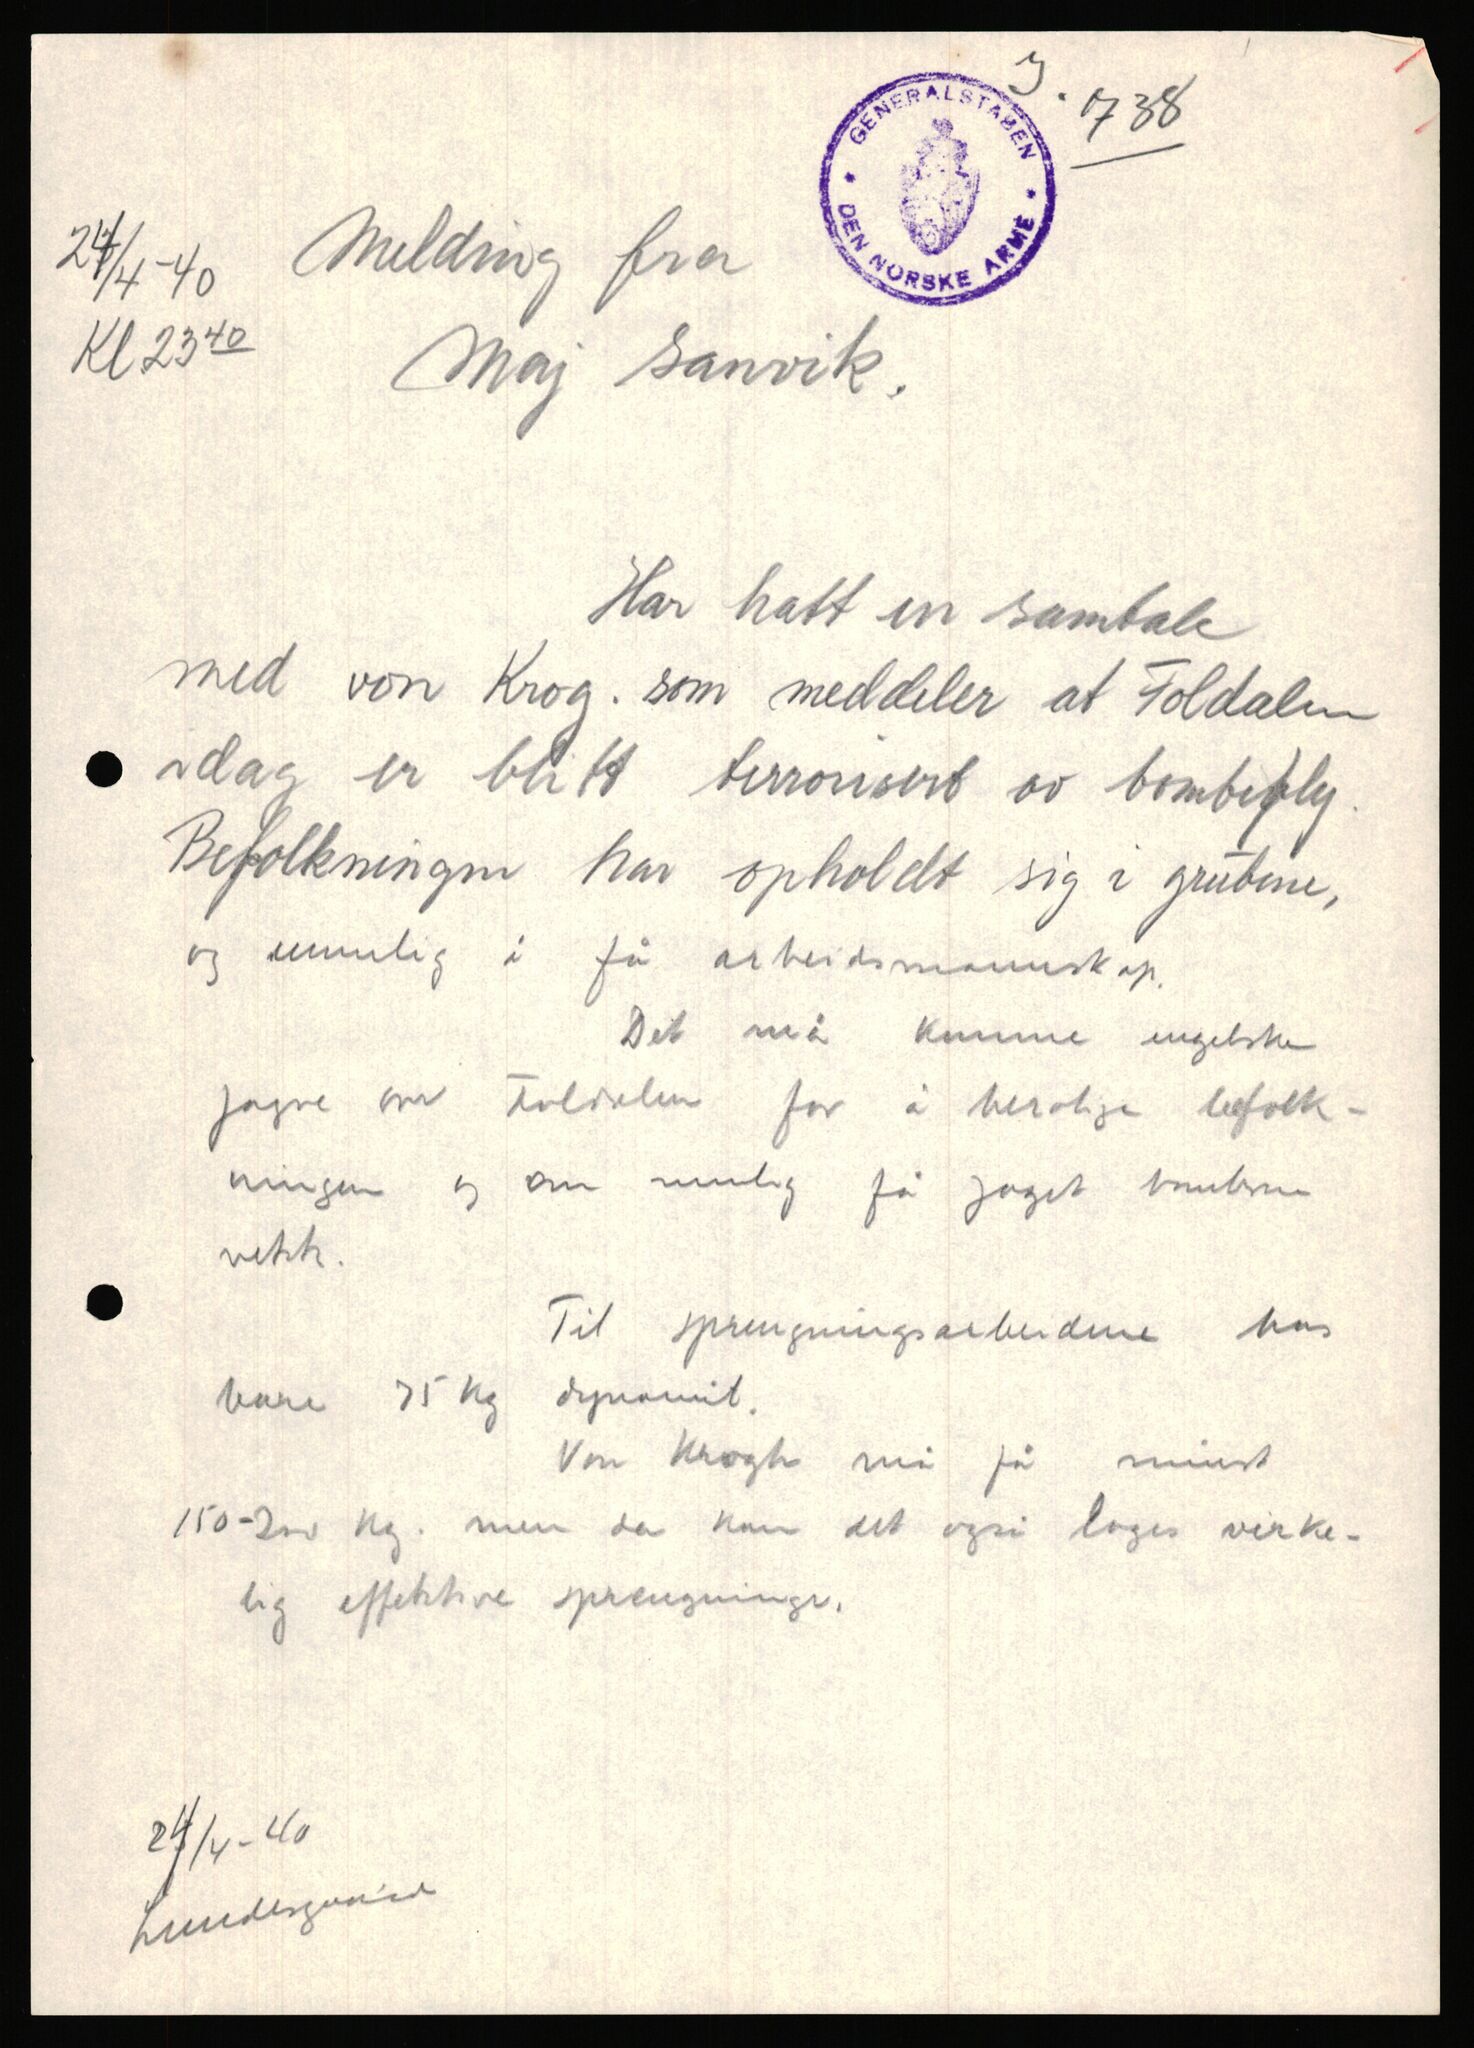 J. 738
GENERALSTABEN
DEN NORSKE ARMÉ
24/4-40
Kl 23 40
Melding fra
Maj Sanvik.
Har hatt en samtale
med von Krog. som meddeler at Foldalen
idag er blitt terrorisert av bombefly.
Befolkningen har opholdt sig i grubene,
og umulig å få arbeidsmannskap.
Det må komme engelske
jagre over Foldalen for å berolige befolk-
ningen og om mulig få jaget bomberne
vekk.
Til sprengningsarbeidene has
bare 75 kg dynamit.
Von Krogh må få minst
150-200 kg. men da kan det også lages virke-
lig effektive sprengninger.
24/4-40
Lundesgaard